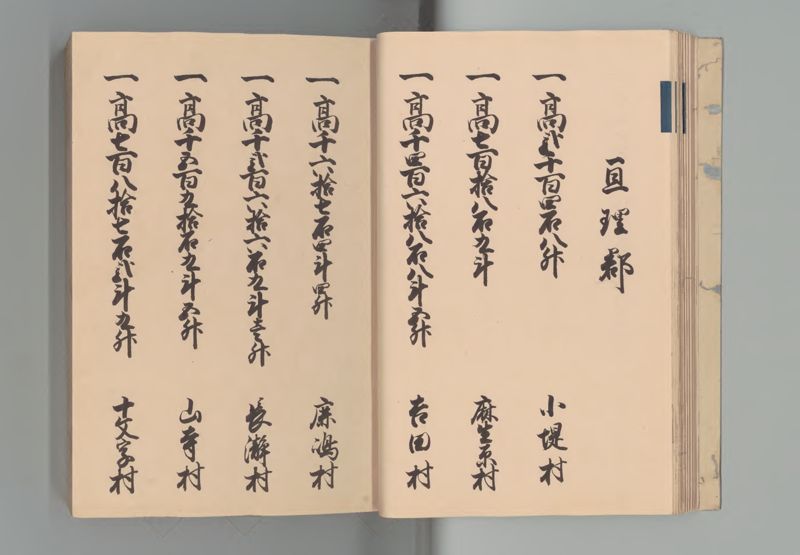 亘理郡
一高弐千百四石八升 小堤村
一高七百拾八石九斗 麻生原村
一高千四百六拾八石八斗五升 吉田村
一高千六拾七石四斗四升 鹿嶋村
一高千弐百六拾六石九斗壱升 長瀞村
一高千五百九拾石九斗五升 山寺村
一高七百八拾七石弐斗九升 十文字村